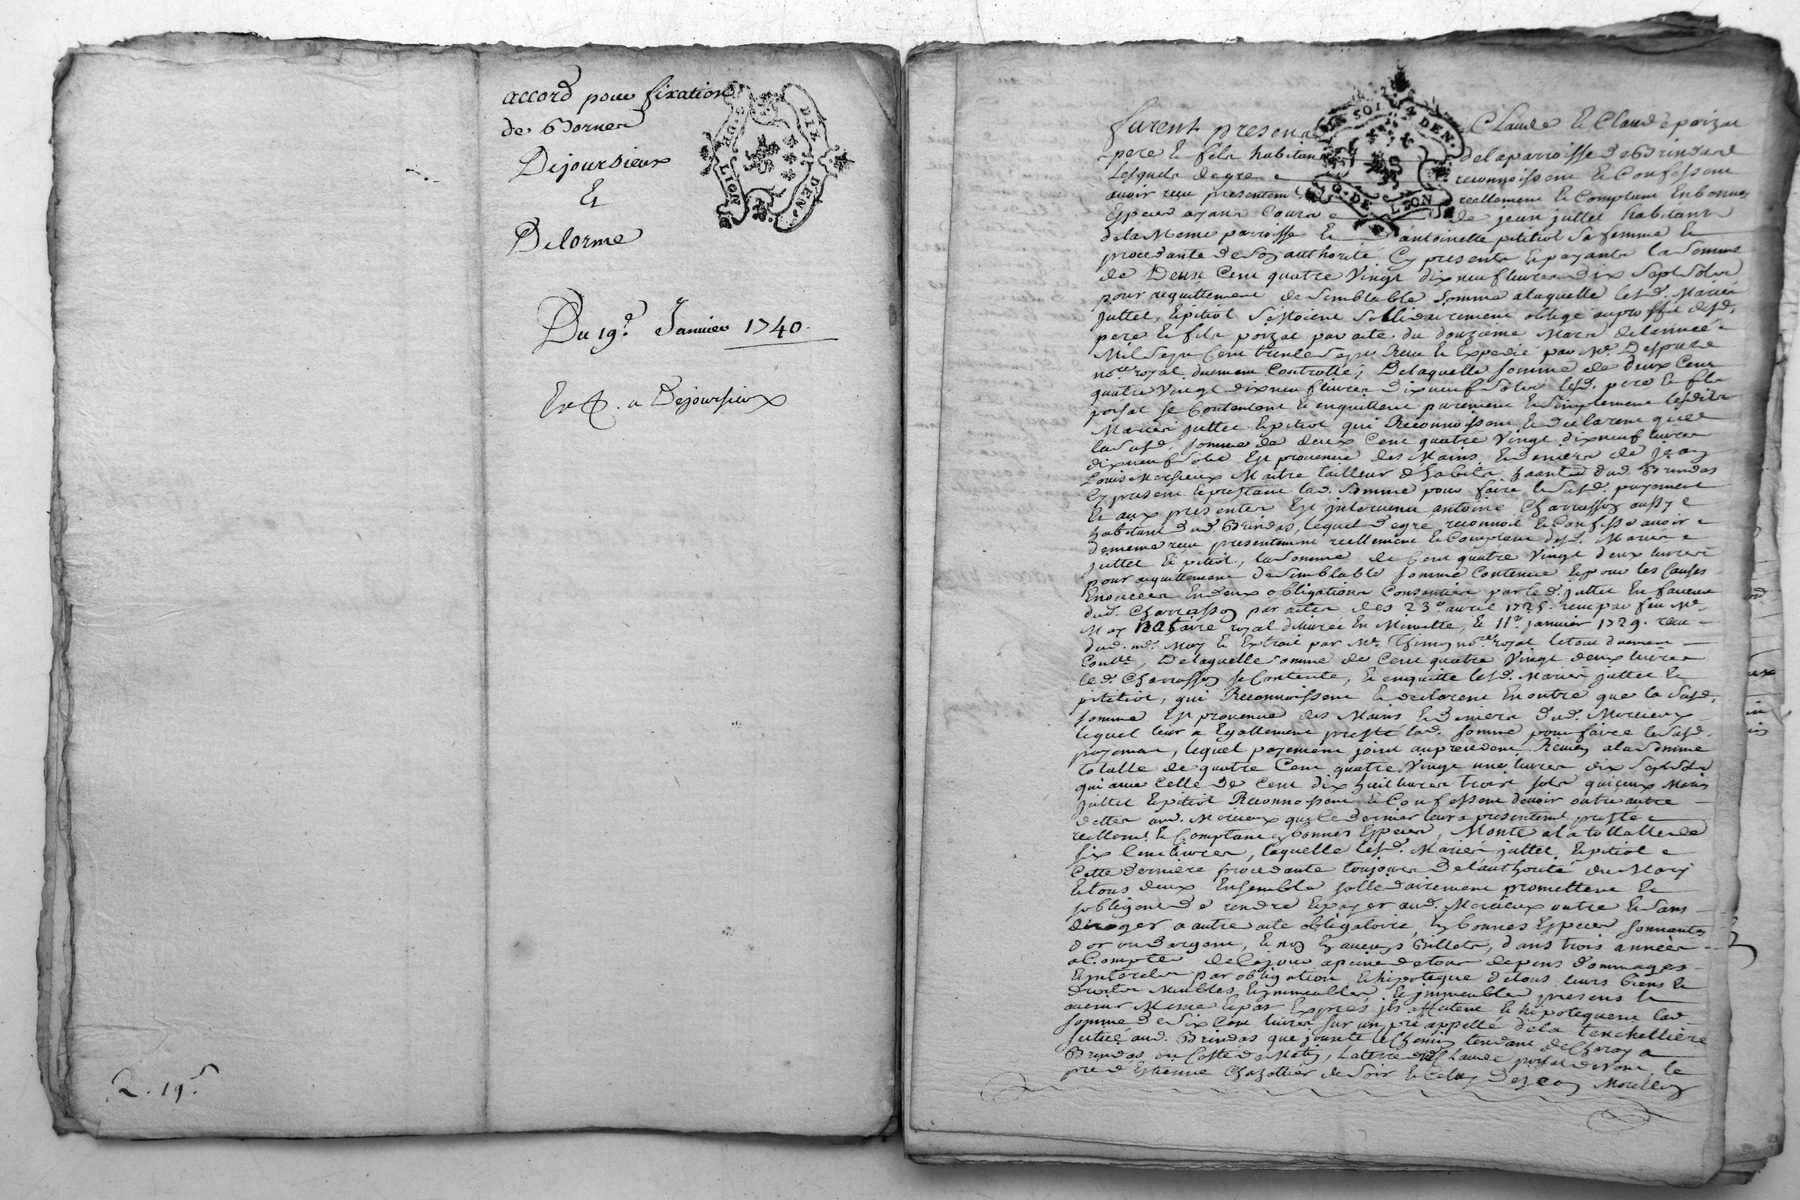 accord pour fixation
de Bornes
Dejoursieux
Et
Delorme
Du 19e. Janvier 1740.
Ext. a Dejoursieux
2. 19s
G. DE LION
DIX DEN.
SOL DEN.
G. DE LEON
furent presens Claude et Claude poizat
pere et fils habitans de la parroisse de Brindas
Lesquels de gre reconnoissent et Confessent
avoir receu presentement reellement et Comptant En bonnes
Especes ayans Cours de jean juttet habitant
de la Meme parroisse et antoinette pitiot Sa femme et
procedante de Son authorité Cy presents et payants la Somme
de Deux Cent quatre Vingt dix neuf livres dix Sept Sols
pour acquittement de Semblable Somme a laquelle lesd. Mariés
Juttet, et pitiot S'etoient Sollidairement obligé au proffit desd.
pere et fils poizat par acte du douzieme Mars de l'année
Mil Sept Cent trente Sept Receu et Expedié par Me. Despuze
nore. royal duement Controllé, De laquelle somme de deux Cent
quatre Vingt dix neuf livres dix neuf Sols lesd. pere et fils
poizat Se Contentent et en quittent purement et Simplement lesdits
Mariés juttet et pitiot qui Reconnoissent et declarent que
la Susd. somme de deux Cent quatre Vingt dix neuf livres
dix neuf Sols Est provenue des Mains et Deniers de Jean
Louis Mercieux Maître tailleur d'habits habitant dud. Brindas
Cy present et prestant lad. Somme pour faire le Susd. payement
Et aux presentes Est intervenu antoine Charrasson aussy
habitant dud. Brindas, lequel de gre reconnoit et Confesse avoir
de meme receu presentement reellement et Comptant desd. Mariés
juttet et pitiot, la somme de Cent quatre Vingt deux livres
pour acquittement de Semblable somme Contenue et pour les Causes
Enoncées En deux obligations Consenties par led. Juttet En faveur
dud. Charrasson par actes des 23e. avril 1725. receu par feu Me.
May notaire royal delivrée En Minutte, et 11e. Janvier 1729. receu
dud. Me. May et Extrait par Me. Thimon nore. royal le tout duement
Conllé, De laquelle somme de Cent quatre Vingt deux livres
led. Charrasson Se Contente, et en quitte lesd. Mariés juttet et
pitiot, qui Reconnoissent et declarent En outre que la Susd.
somme Est provenue des Mains et Deniers dud. Mercieux
lequel leur a Egallement presté lad. somme pour faire le Susd.
payement, lequel payement joint au precedent Revient a la Somme
totalle de quatre Cent quatre Vingt une livres dix Sept Sols
qui avec Celle de Cent dix huit livres trois sols que iceux Mariés
Juttet et pitiot Reconnoissent et Confessent devoir outre autre
dettes aud. Mercieux que Ce dernier leur a presentement presté
reellement et Comptant En bonnes Especes, Monte a la tottalle de
Six Cent livres, laquelle lesd. Mariés juttet et pitiot
Cette derniere procedante toujours De l'authorité du Mary
Et tous deux Ensemble sollidairement promettent et
s'obligent de rendre et payer aud. Mercieux outre et Sans
déroger a autre acte obligatoire, En bonnes Especes Sonnantes
d'or ou d'argent, et non En aucuns Billets, dans trois années
a Compter de Ce jour a peine de tous depens Dommages
Et interets par obligation et hipoteque de tous leurs biens et
droits Meubles, Et immeubles presens et
avenir Meme et par Exprés ils affectent et hipotequent lad.
somme de Six Cent livres sur un pré appellé de la tenchelliere
Situé aud. Brindas que jouxte le Chemin tendant de Charay a
Brindas du Costé de Matin, La terre de Claude poizat de Vent, le
pré d'Estienne Chazottier de Soir et Celuy de Jean Morellon